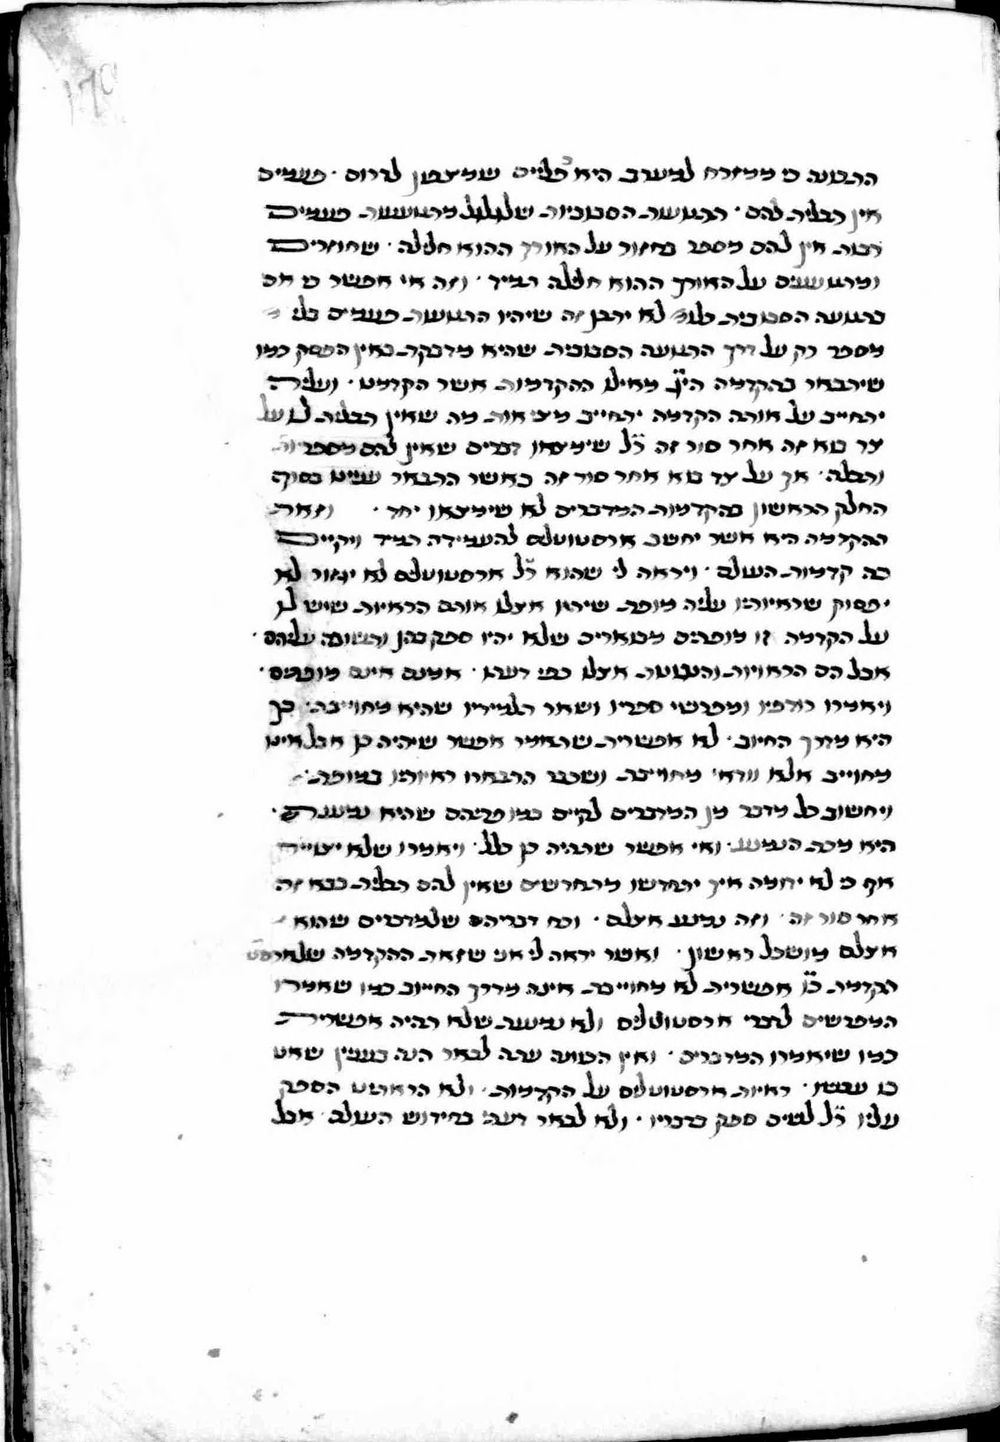 התנועה כי ממזרח למערב היא כפליים שמצפון לדרום · פעמים
אין תכלית להם · התנועות הסבוביות שלגלגל מתנועעות פעמים
רבות אין להם מספר בחזור על האורך ההוא חלילה · שחוזרים
ומתנועעים על האורך ההוא חלילה תמיד · וזה אי אפשר כי אם
בתנועה הסבובית כלומ' לא יתכן זה שיהיו התנועות פעמים בלי
מספר רק על דרך התנועה הסבובית שהיא מדבקת באין הפסק כמו
שיתבאר בהקדמה הי"ג מאילו ההקדמות אשר הקדמנו · ועליה
יתחייב על אותה הקדמה יתחייב מציאות מה שאין תכלית לו על
צד בוא זה אחר סור זה ר"ל שימצאו דברים שאין להם מספר
ותכלה · אך על צד בוא אחר סור זה כאשר התבאר ענינו בסוף
החלק הראשון בהקדמות המדברים לא שימצאו יחד · וזאת
ההקדמה היא אשר יחשב ארסטוטלוס להעמידה תמיד ויקיים
בה קדמות העולם · ויראה לי שהוא ר"ל ארסטוטלוס לא יגזור ולא
יפסוק שראיותיו עליה מופת שיהיו אצלו אותם הראיות שיש לו
על הקדמה זו מופתים מבוארים שלא יהיו ספק בהן ותשובה עליהם ·
אבל הם הראויות והנאותות אצלו כפי דעתו · אמנם אינם מופתים ·
ויאמרו רודפיו ומפרשי ספריו ושאר תלמידיו שהיא מחוייבת · כך
היא מדרך החיוב · לא אפשרית שתאמר אפשר שיהיה כן אבל אינו
מחוייב אלא וודאי מחוייבת ושכבר התבארו ראיותיו במופת ·
ויחשוב כל מדבר מן המדברים לקיים כמו פתיהם שהיא נמנעת ·
היא מכת הנמנע · ואי אפשר שתהיה כן כלל · ויאמרו שלא יצוייר
אף כי לא יחמה איך יתחדשו מתחדשים שאין להם תכלית בבא זה
אחר סור זה · וזה נמנע אצלם · וכח דבריהם שלמדברים שהוא
אצלם מושכל ראשון · ואשר יראה לי אני שזאת ההקדמה שלארסטו
הקדמת כ"ו אפשרית לא מחוייבת אינה מדרך החייוב כמו שאמרו
המפרשים לדברי ארסטוטלוס ולא נמנעת שלא תהיה אפשרית
כמו שיאמרו המדברים · ואין הכוונה עתה לבאר הנה בענין שאנו
בו עכשיו · ראיות ארסטוטלוס על הקדמות · ולא הראותנו הספק
עליו ר"ל לשים ספק בדבריו · ולא לבאר דעתי בחידוש העולם · אבל